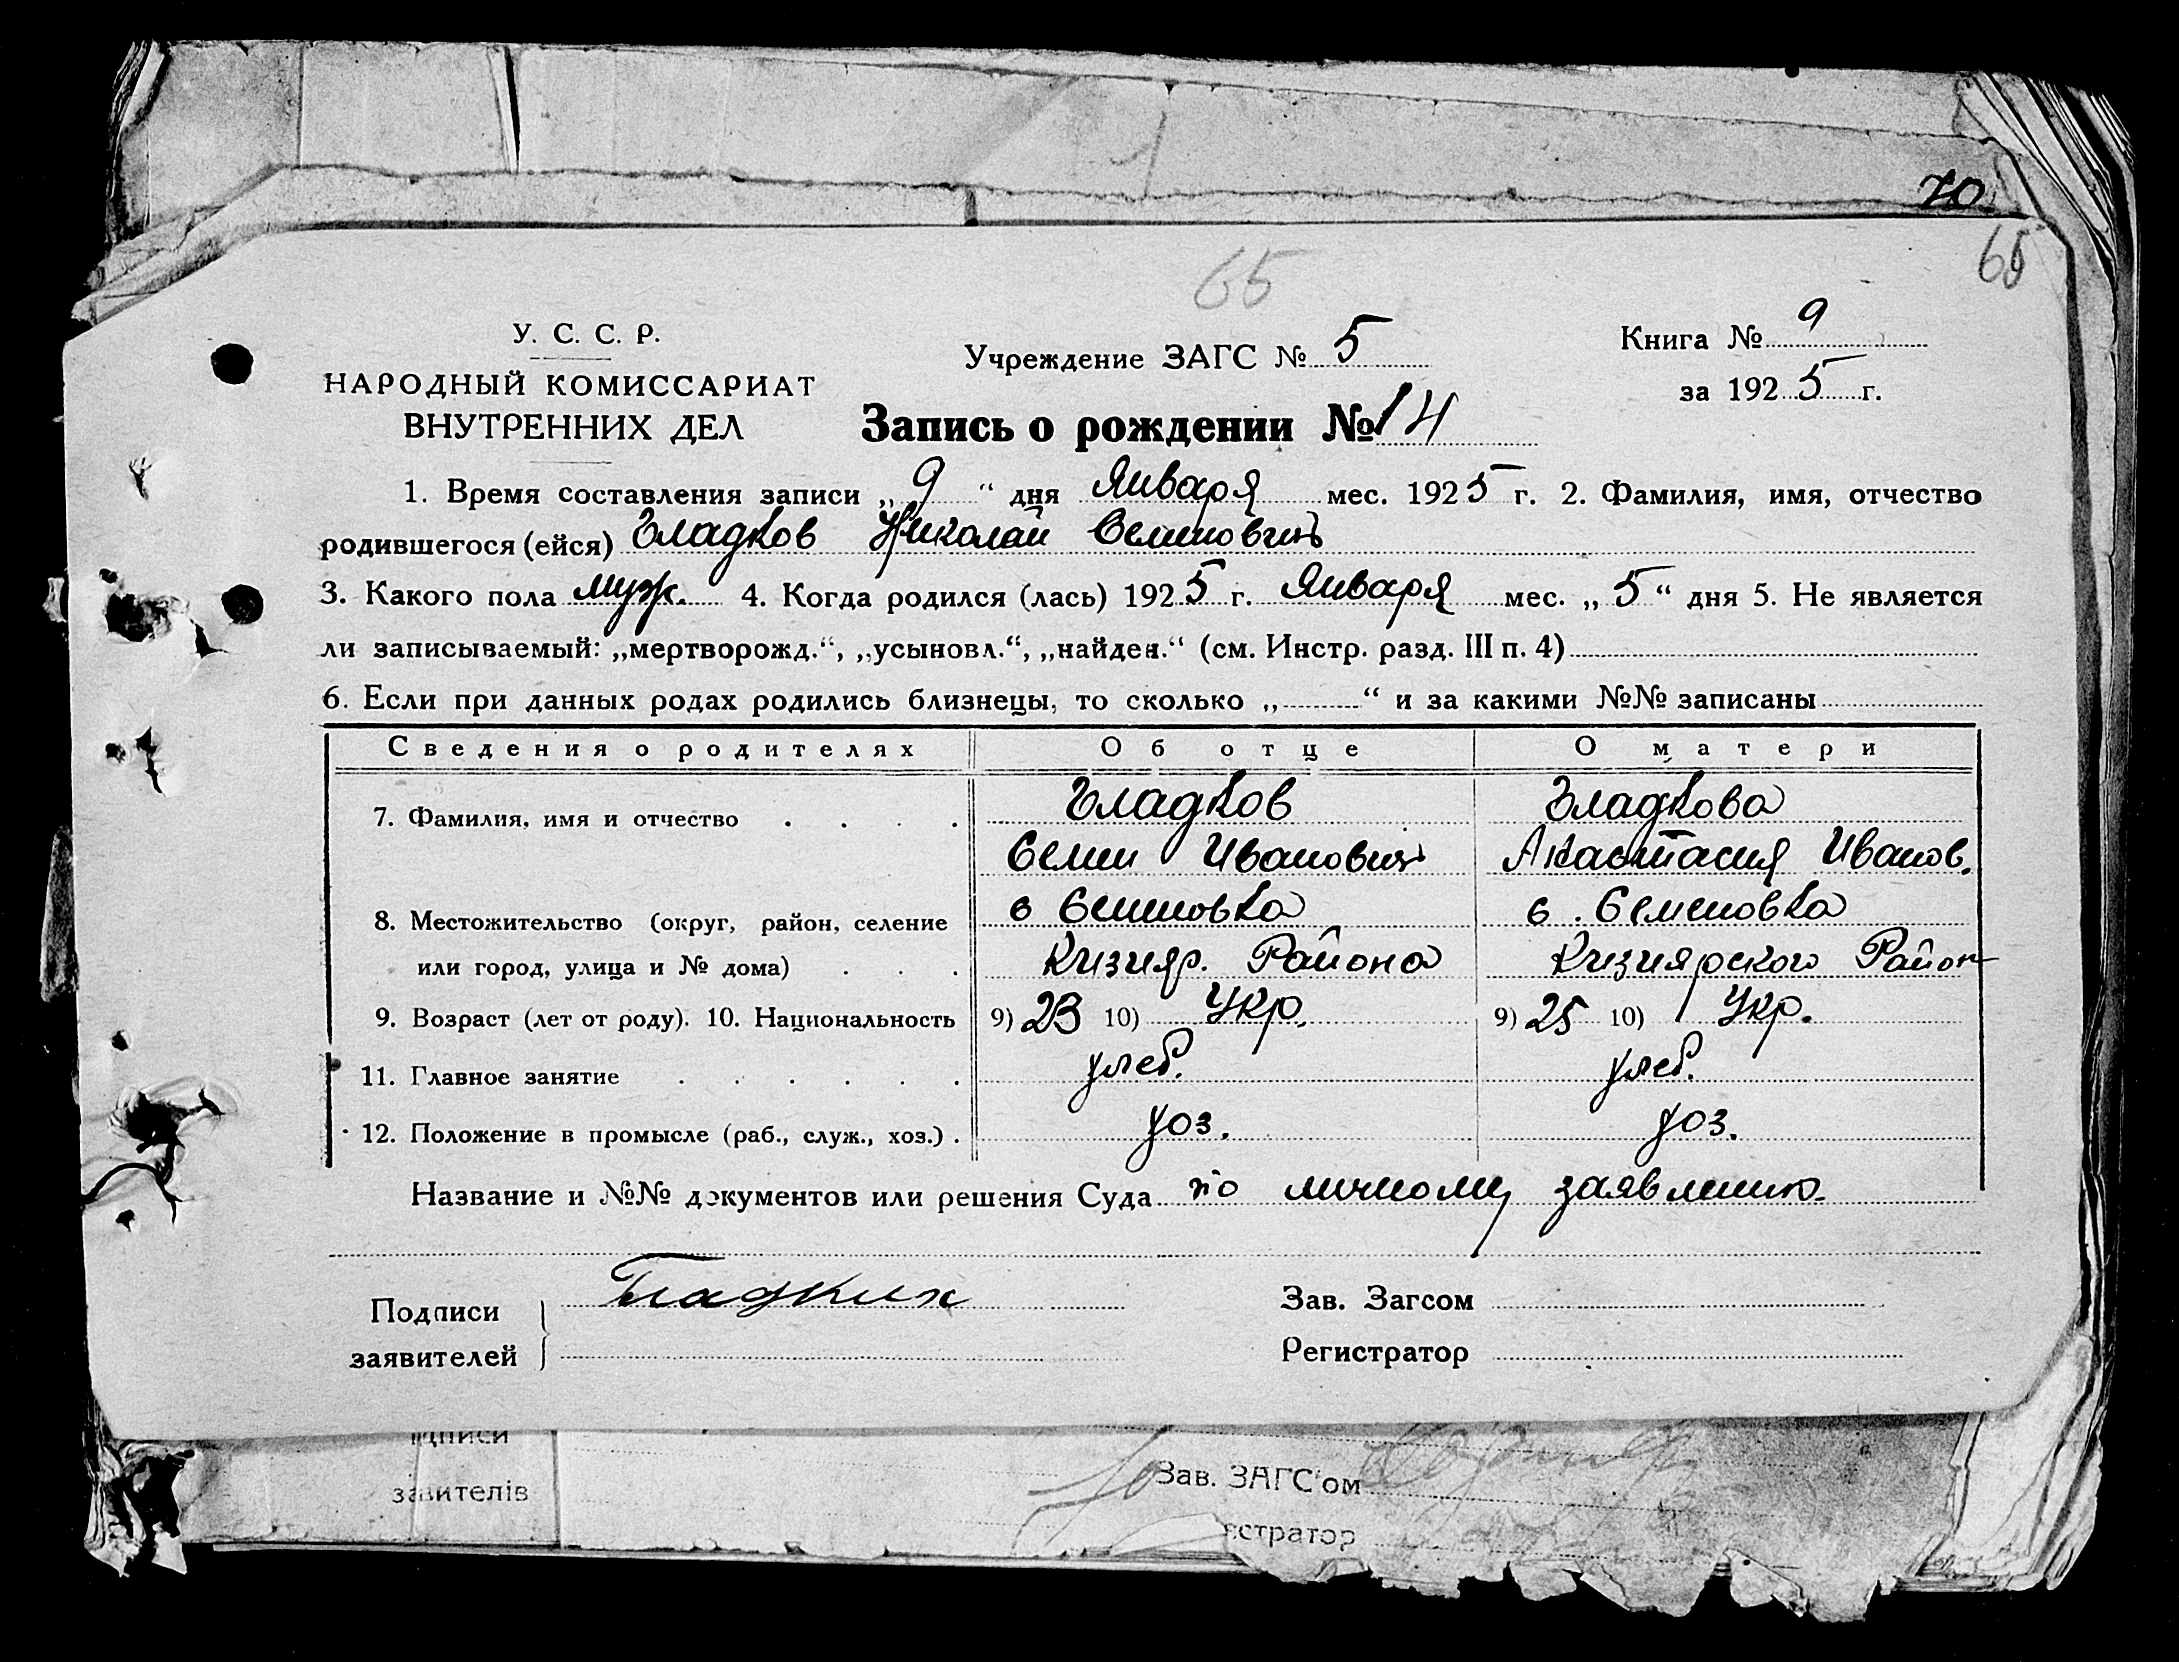 70
65
65
У. С. С. Р.
НАРОДНЫЙ КОМИССАРИАТ
ВНУТРЕННИХ ДЕЛ
Учреждение ЗАГС № 5
Книга № 9
за 1925 г.
Запись о рождении № 14
1. Время составления записи „ 9 “ дня Января мес. 1925 г. 2. Фамилия, имя, отчество
родившегося (ейся) Гладков Николай
3. Какого пола муж. 4. Когда родился (лась) 1925 г. Января мес. „ 5 “ дня 5. Не является
ли записываемый: „мертворожд.“, „усыновл.“, „найден.“ (см. Инстр. разд. III п. 4)
6. Если при данных родах родились близнецы, то сколько „ “ и за какими №№ записаны
Сведения о родителях Об отце О матери
7. Фамилия, имя и отчество . . . . Гладков Гладкова
Иванович Анастасия Иванов.
8. Местожительство (округ, район, селение с Семеновка с. Семеновка
или город, улица и № дома) . . . Кизияр. Района Кизиярского Район
9. Возраст (лет от роду). 10. Национальность 9) 23 10) Укр. 9) 25 10) Укр.
11. Главное занятие . . . . . . хлеб. хлеб.
12. Положение в промысле (раб., служ., хоз.) . хоз. хоз.
Название и №№ документов или решения Суда по личному заявлению
Подписи
заявителей
Зав. Загсом
Регистратор
Зав. ЗАГС'ом